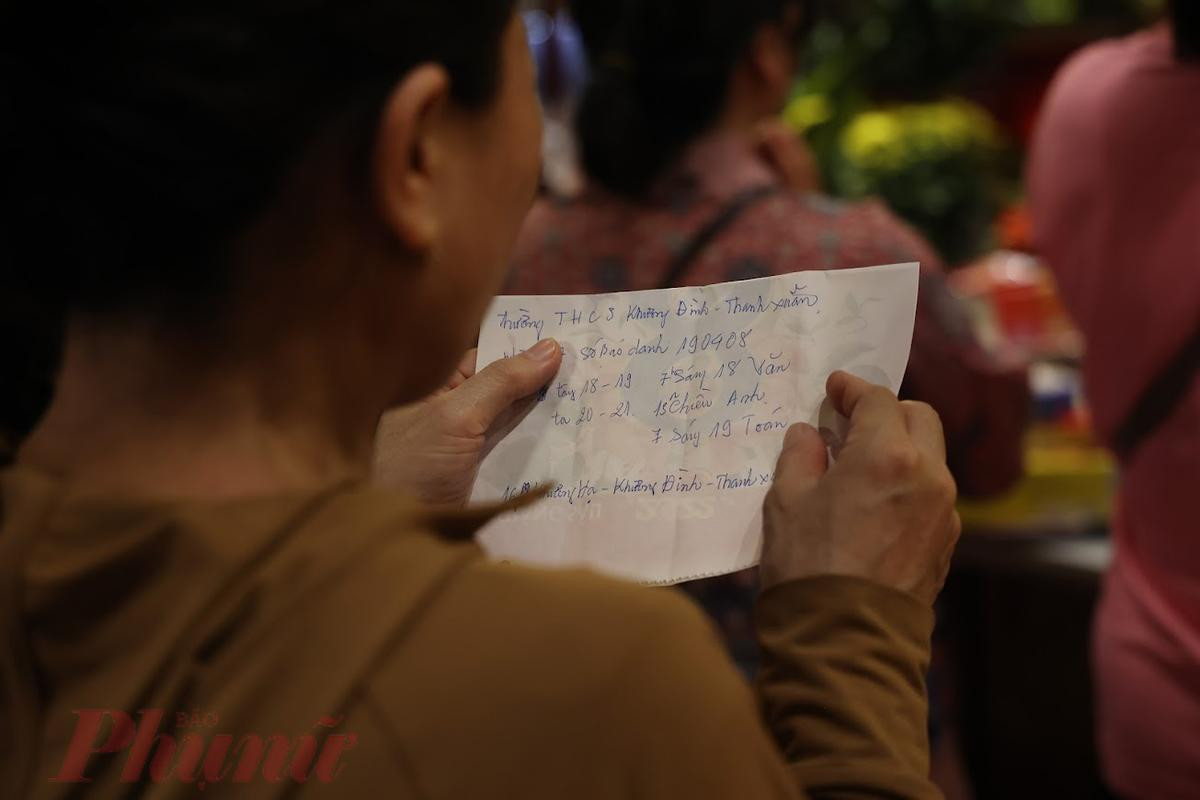 Trường THCS Khương Đình - Thanh Xuân.
số báo danh 190408
tây 18 - 19 7h Sáng 18 Văn
ta 20 - 21. 15h Chiều Anh.
7h Sáng 19 Toán
Hạ - Khương Đình - Thanh
2022
BÁO
Phụ nữ